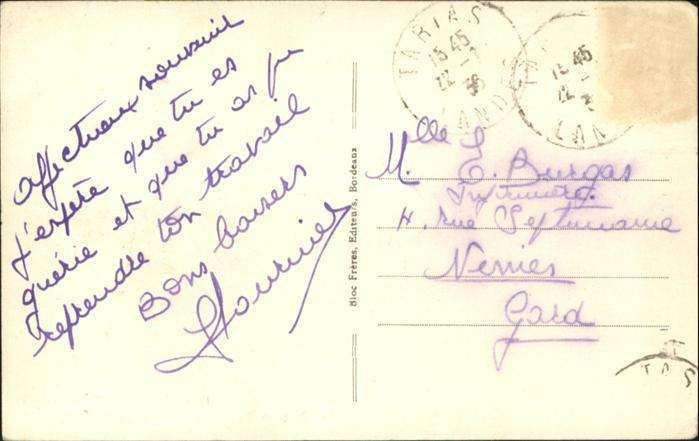 affectueux souvenir
j'espère que tu es
guérie et que tu as pu
reprendre ton travail
Bons baisers
Fournier
Bloc Frères, Editeurs, Bordeaux
15 45
22
LANDES
15 45
22
LAN
TAS
Mlle E. Burgas
H. rue Septimanie
Nimes
Gard